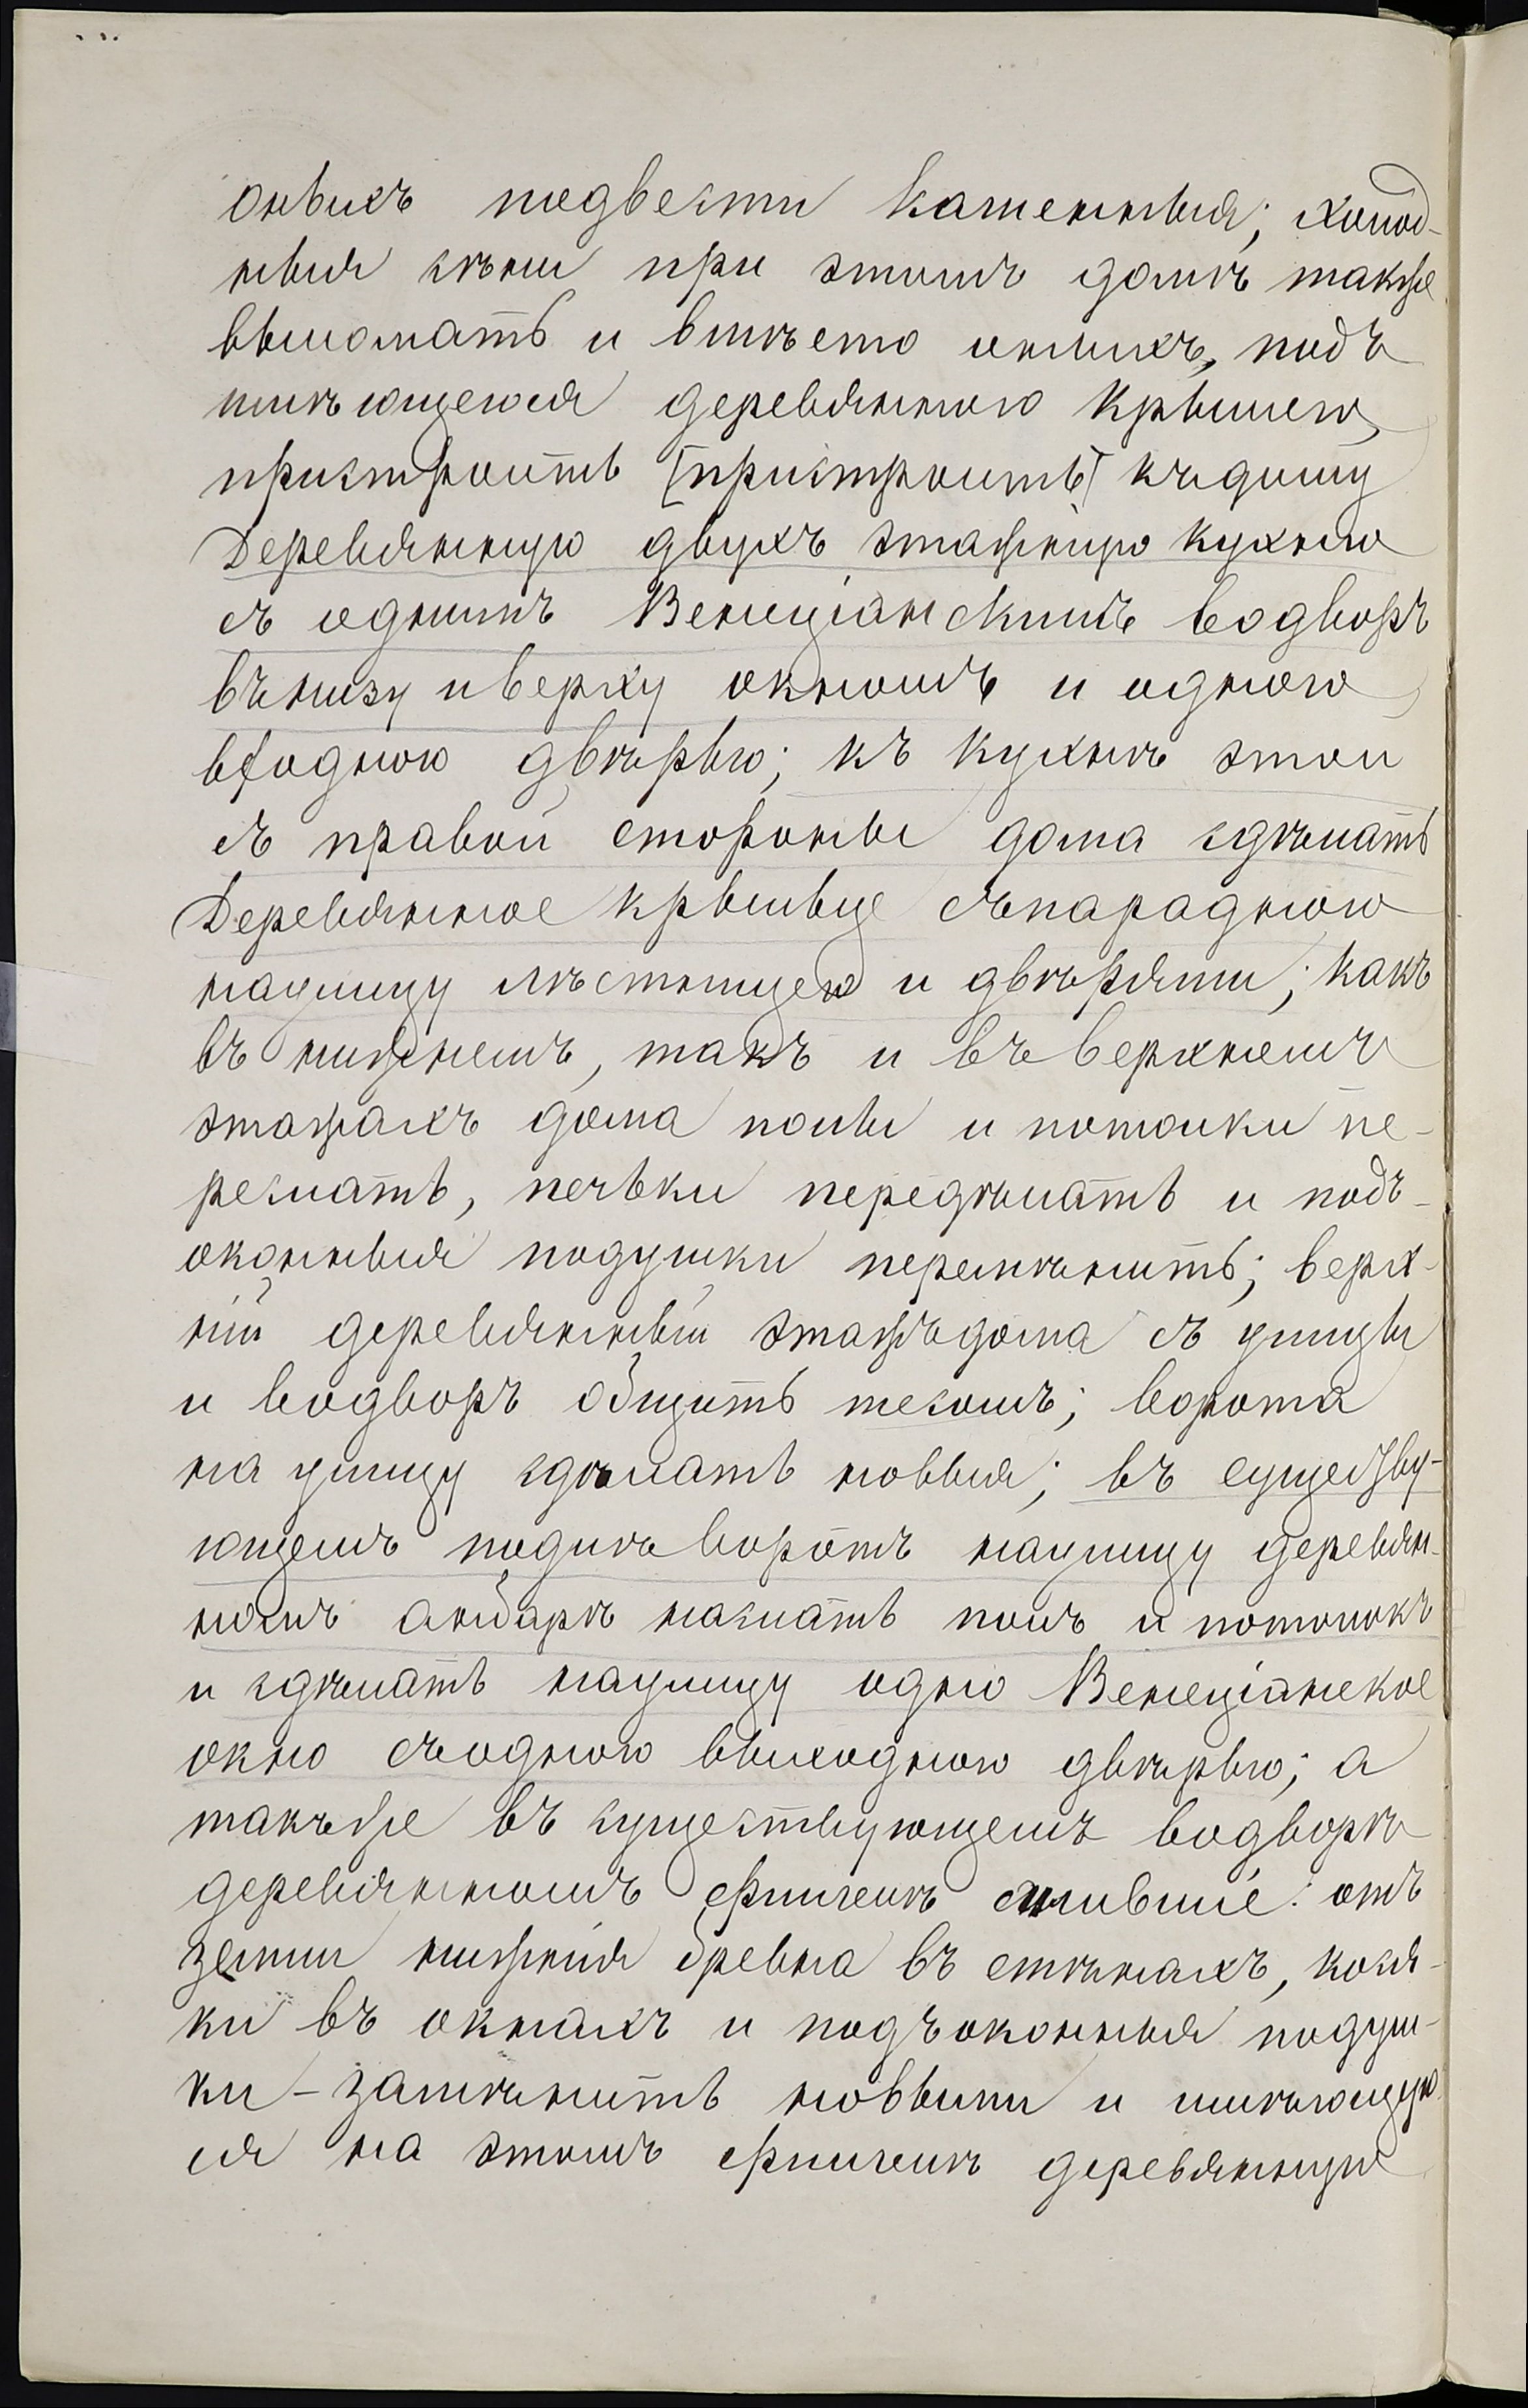 оныхъ подвести каменныя; холод-
ныя сѣни при этомъ домѣ также
выломать и вмѣсто оныхъ, подъ
имѣющеюся деревянною крышею,
пристроить [пристроить] къ дому
Деревянную двухъ этажную кухню
съ однимъ Венеціанскимъ водворъ
вънизу и верху окномъ и одною
входною двѣрью; къ кухнѣ этой
съ правой стороны дома сдѣлать
Деревянное крыльце съ парадною
наулицу лѣстницею и двѣрями; какъ
въ нижнемъ, такъ и въ верхнемъ
этажахъ дома полы и потолки пе-
реслать, печьки передѣлать и подъ-
оконныя подушки перемѣнить; верх-
ній деревянный этажъ дома съ улицы
и водворъ обшить тесомъ; ворота
на улицу сдѣлать новыя; въ существу-
ющемъ подлѣ воротъ наулицу деревян-
номъ анбарѣ наслать полъ и потолокъ
и сдѣлать наулицу одно Венеціанское
окно съ одною выходною двѣрью; а
такъ же въ существующемъ водворѣ
деревянномъ флигелѣ сгнившіе отъ
земли нижнія бревна въ стѣнахъ, кося-
ки въ окнахъ и подъоконныя подуш-
ки - замѣнить новыми и имѣющую
ся на этомъ флигелѣ деревянную